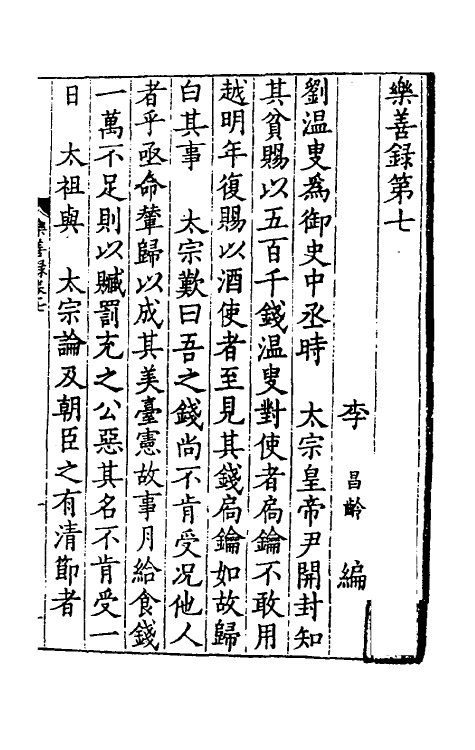 樂善録第七
李昌齡編
劉温叟爲御史中丞時　太宗皇帝尹開封知
其貧賜以五百千錢温叟對使者扃鑰不敢用
越明年復賜以酒使者至見其錢扃鑰如故歸
白其事　太宗歎曰吾之錢尚不肯受况他人
者乎亟命輦歸以成其美臺憲故事月給食錢
一萬不足則以贓罰充之公惡其名不肯受一
日　太祖與　太宗論及朝臣之有清節者
樂善録卷七